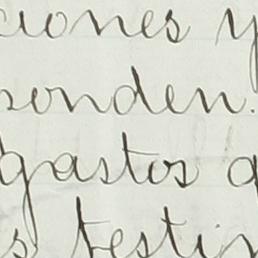 ciones y
sonden.
gastos a
s testi